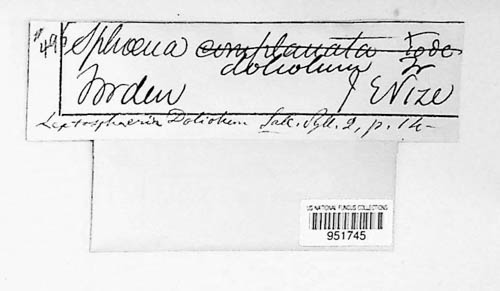 Sphœria ~~complanata Tode~~
doliolum Fr
Norden E Vize
Leptosphaeria Doliolum Sacc. Syll. 2, p. 14-
US NATIONAL FUNGUS COLLECTIONS
951745